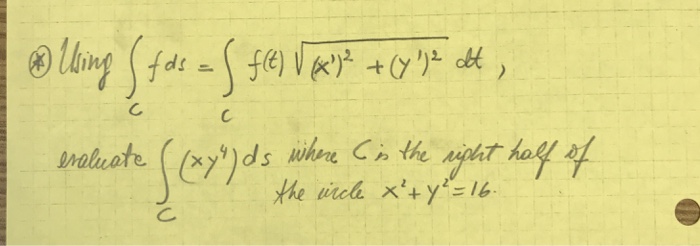 ⊛ Using ∫_C f ds = ∫_C f(t) √((x')² + (y')²) dt ,
evaluate ∫_C (xy⁴) ds where C is the right half of
the circle x² + y² = 16.